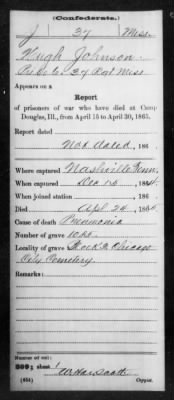 (Confederate.)
J 37 Miss.
Hugh Johnson
Pvt Co. C. 37 Regt Miss
Appears on a
Report
of prisoners of war who have died at Camp
Douglas, Ill., from April 15 to April 30, 1865.
Report dated
Not dated, 186
Where captured Nashville Tenn.
When captured Dec 15, 1864.
When joined station , 186
Died Apl 24, 1865
Cause of death Pneumonia
Number of grave
Locality of grave Block 2 Chicago
City Cemetery.
Remarks:
Number of roll:
sheet 1
(654) Copyist.